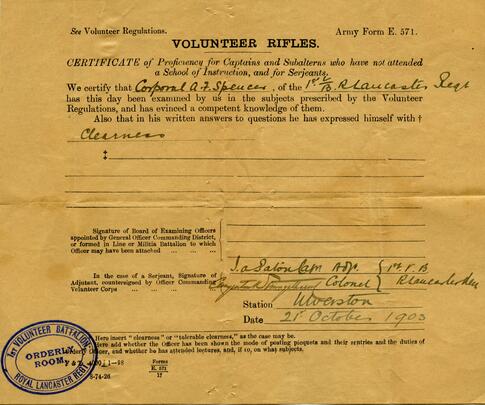 See Volunteer Regulations. Army Form E. 571.
VOLUNTEER RIFLES.
CERTIFICATE of Proficiency for Captains and Subalterns who have not attended
a School of Instruction, and for Serjeants.
We certify that Corporal A. F. Spencer, of the 1st V. B. R. Lancaster Regt
has this day been examined by us in the subjects prescribed by the Volunteer
Regulations, and has evinced a competent knowledge of them.
Also that in his written answers to questions he has expressed himself with †
Clearness
‡
Signature of Board of Examining Officers
appointed by General Officer Commanding District,
or formed in Line or Militia Battalion to which
Officer may have been attached ... ... ...
Capt Adjt. 1st V. B
In the case of a Serjeant, Signature of
Adjutant, countersigned by Officer Commanding
Volunteer Corps ... ... ...
Colonel R Lancaster
Station Ulverston
Date 21st October 1903
Here insert "clearness" or "tolerable clearness," as the case may be.
Here add whether the Officer has been shown the mode of posting picquets and their sentries and the duties of
Officer, and whether he has attended lectures, and, if so, on what subjects.
1st VOLUNTEER BATTALION
ORDERLY
ROOM,
ROYAL LANCASTER REGT.
1—98
Forms
E. 571
8-74-26